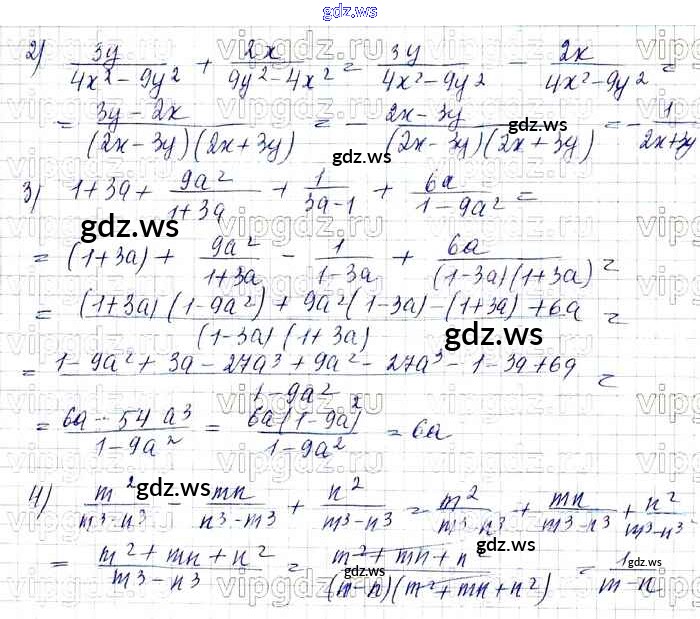 gdz.ws
2) 3y/(4x²-9y²) + 2x/(9y²-4x²) = 3y/(4x²-9y²) - 2x/(4x²-9y²) =
= (3y-2x)/((2x-3y)(2x+3y)) = - (2x-3y)/((2x-3y)(2x+3y)) = - 1/(2x+3y)
3) 1+3a+ 9a²/(1+3a) + 1/(3a-1) + 6a/(1-9a²) =
= (1+3a) + 9a²/(1+3a) - 1/(1-3a) + 6a/((1-3a)(1+3a)) =
= ((1+3a)(1-9a²)+9a²(1-3a)-(1+3a)+6a)/((1-3a)(1+3a)) =
= (1-9a²+3a-27a³+9a²-27a³-1-3a+6a)/(1-9a²) =
= (6a-54a³)/(1-9a²) = 6a(1-9a²)/(1-9a²) = 6a
4) m²/(m³-n³) - mn/(n³-m³) + n²/(m³-n³) = m²/(m³-n³) + mn/(m³-n³) + n²/(m³-n³)
= (m²+mn+n²)/(m³-n³) = (m²+mn+n²)/((m-n)(m²+mn+n²)) = 1/(m-n)